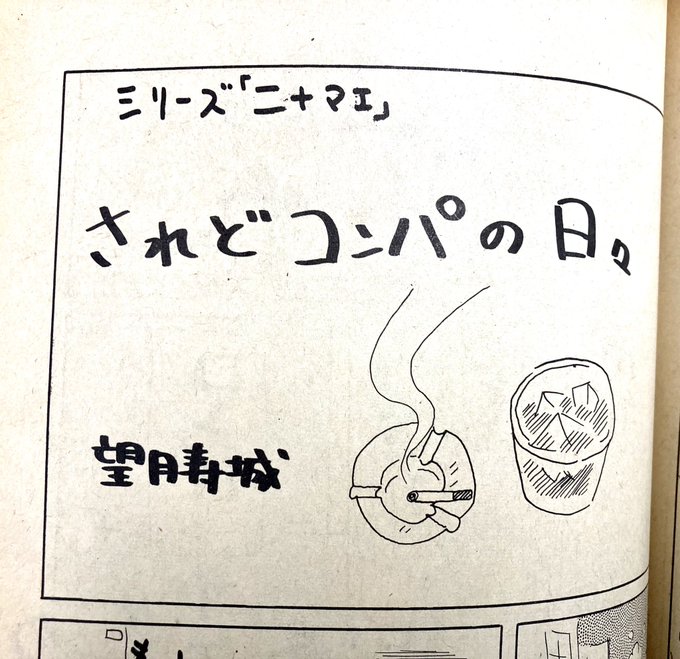 ミリーズ「二十マエ」
されどコンパの日々
望月寿城